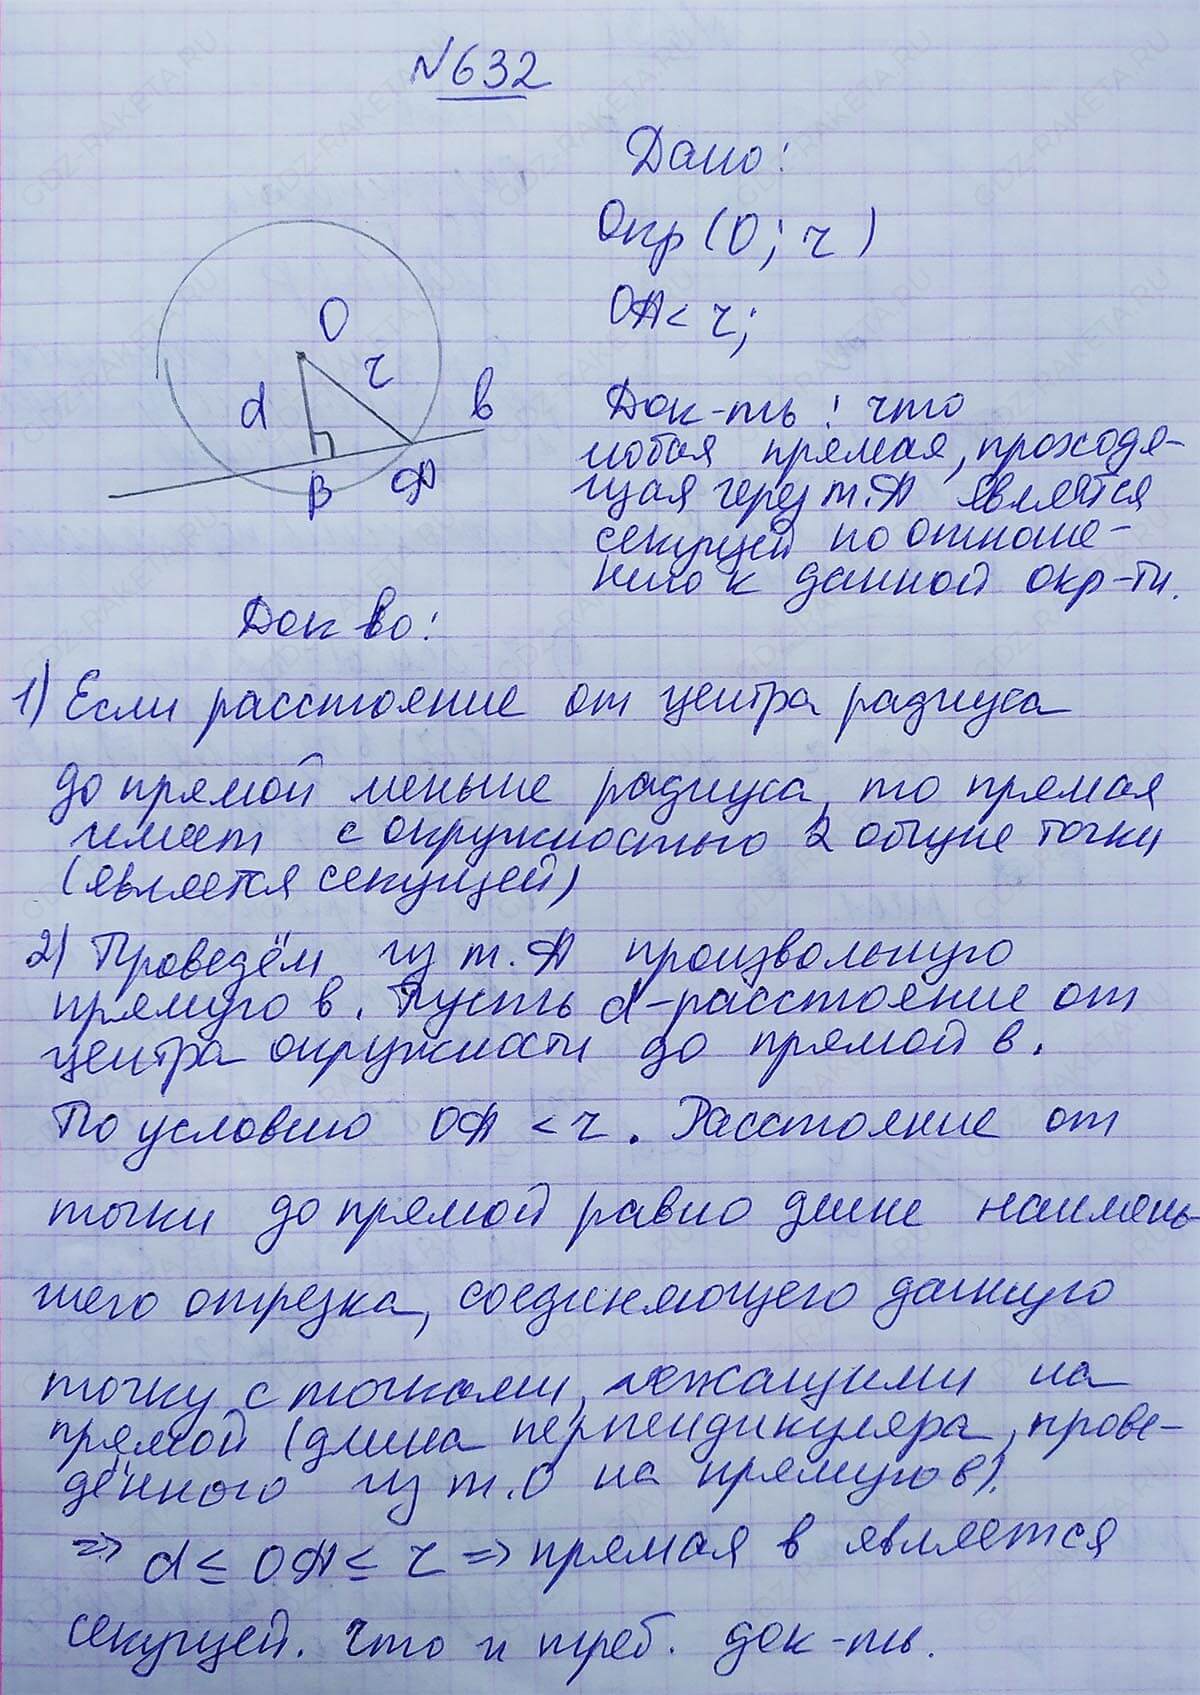 №632
Дано:
Окр (О; r)
ОА < r;
Док-ть: что
любая прямая, проходя-
щая через т. А является
секущей по отноше-
нию к данной окр-ти.
О
r
d
в
В
А
Док во:
1) Если расстояние от центра радиуса
до прямой меньше радиуса, то прямая
имеет с окружностью 2 общие точки
(является секущей)
2) Проведём из т. А произвольную
прямую в. Пусть d-расстояние от
центра окружности до прямой в.
По условию ОА < r. Расстояние от
точки до прямой равно длине наимень-
шего отрезка, соединяющего данную
точку с точками, лежащими на
прямой (длина перпендикуляра, прове-
дённого из т. О на прямую в).
=> d ≤ ОА ≤ r => прямая в является
секущей. Что и треб. док-ть.